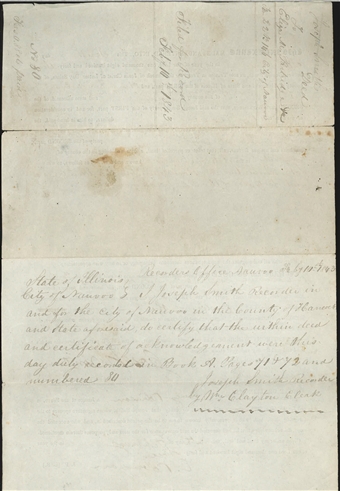 No 80
Filed for Record
Feb 10th 1843
Joseph Smith
To
Deed
Recorders Office Nauvoo Feby 10th 1843
State of Illinois
City of Nauvoo I Joseph Smith Recorder in
and for the City of Nauvoo in the County of Hancock
and State aforesaid, do certify that the within deed
and certificate of acknowledgement were this
day duly recorded in Book A. Pages 71 & 72 and
numbered 80
Joseph Smith Recorder
By Wm Clayton Clerk